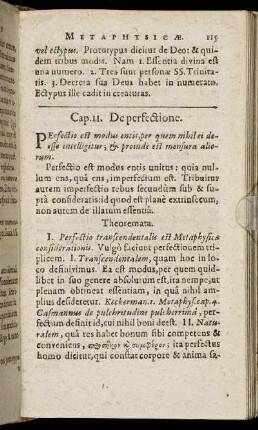 METAPHYSICÆ. 115
vel ectypus. Prototypus dicitur de Deo: & qui-
dem tribus modis. Nam 1. Essentia divina est
una numero. 2. Tres sunt personæ SS. Trinita-
tis. 3. Decreta sua Deus habet in numerato.
Ectypus ille cadit in creaturas.
Cap. 11. De perfectione.
PErfectio est modus entis, per quem nihil ei de-
esse intelligitur; & proinde est mensura alio-
rum.
Perfectio est modus entis unitus: quia nul-
lum ens, quâ ens, imperfectum est. Tribuitur
autem imperfectio rebus secundùm sub & su-
prà consideratis: id quod est planè extrinsecum,
non autem de illatum essentiâ.
Theoremata.
I. Perfectio transcendentalis est Metaphysicæ
considerationis. Vulgò faciunt perfectionem tri-
plicem. I. Transcendentalem, quam hoc in lo-
co definivimus. Ea est modus, per quem quid-
libet in suo genere absolutum est, ita nempe, ut
plenam obtineat essentiam, in quâ nihil am-
plius desideretur. Keckerman. 1. Metaphys. cap. 4.
Casmannus de pulchritudine pulcherrimâ, per-
fectum definit id, cui nihil boni deest. II. Natu-
ralem, quâ res habet bonum sibi competens &
conveniens, ita perfectus
homo dicitur, qui constat corpore & anima sa-